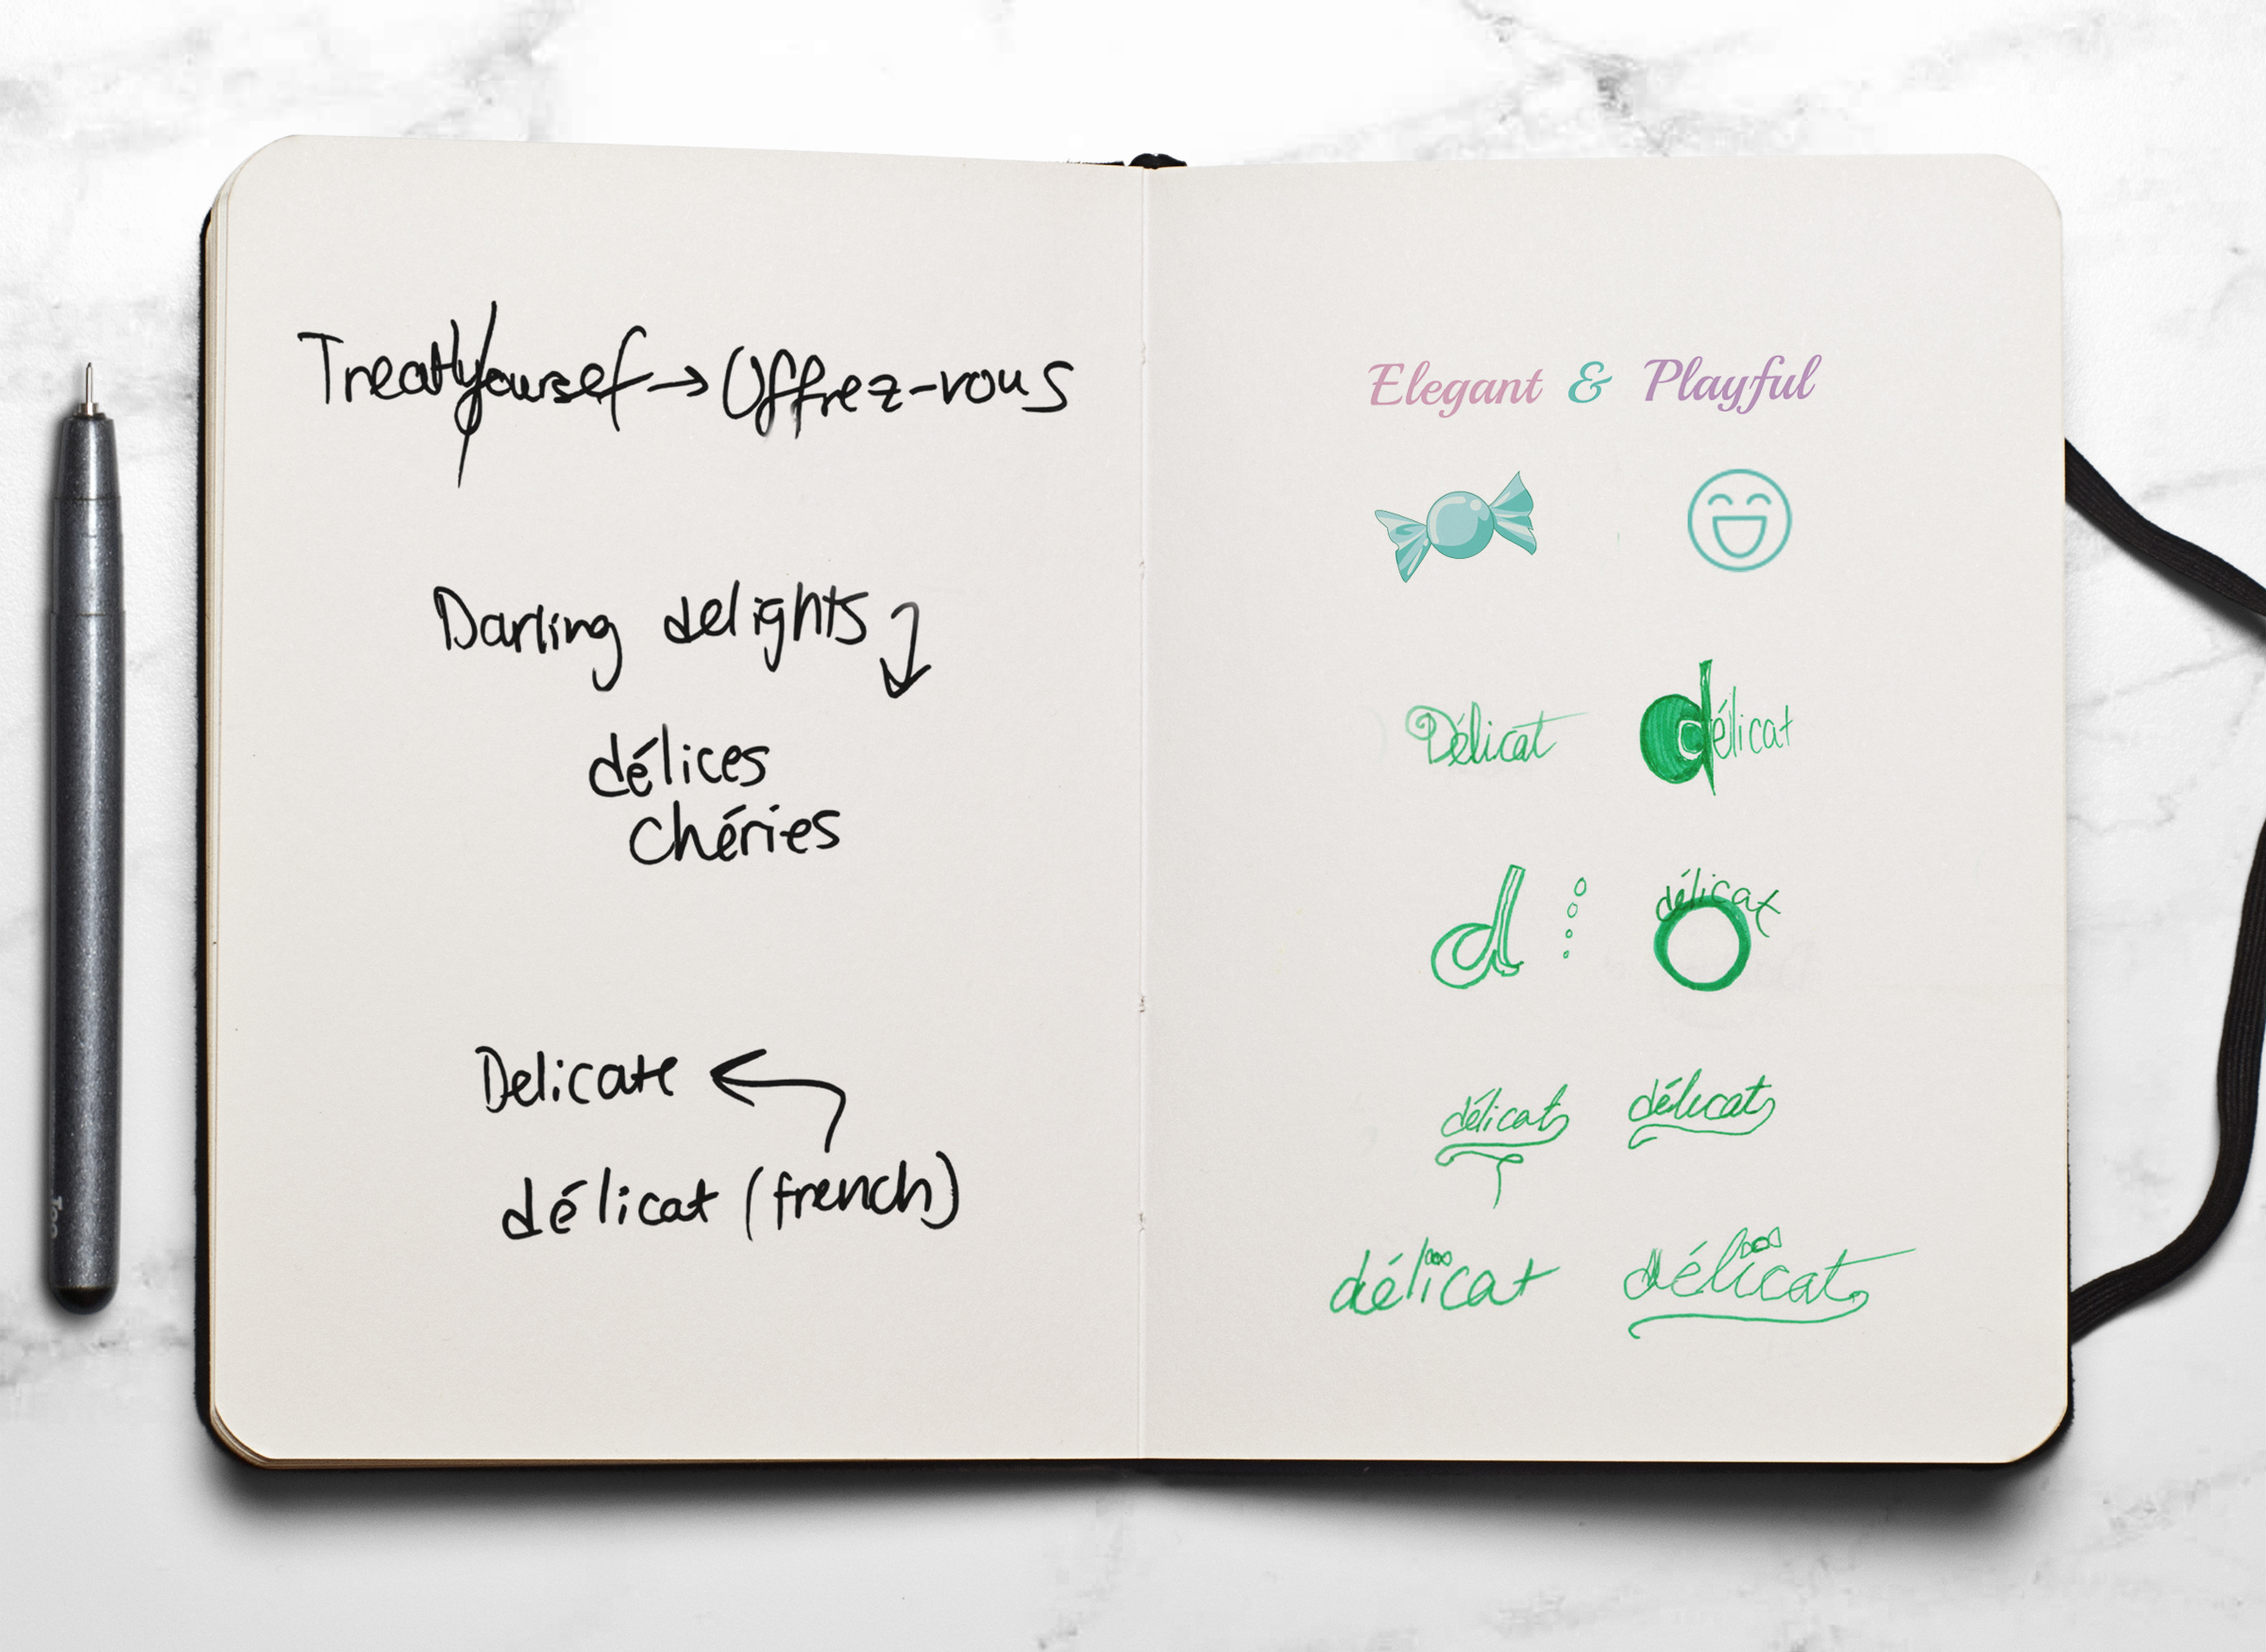 Treat yoursef → Offrez-vous
Darling delights
délices
chéries
Delicate
délicat (french)
Elegant & Playful
Délicat délicat
d délicat
délicat délicat
délicat délicat